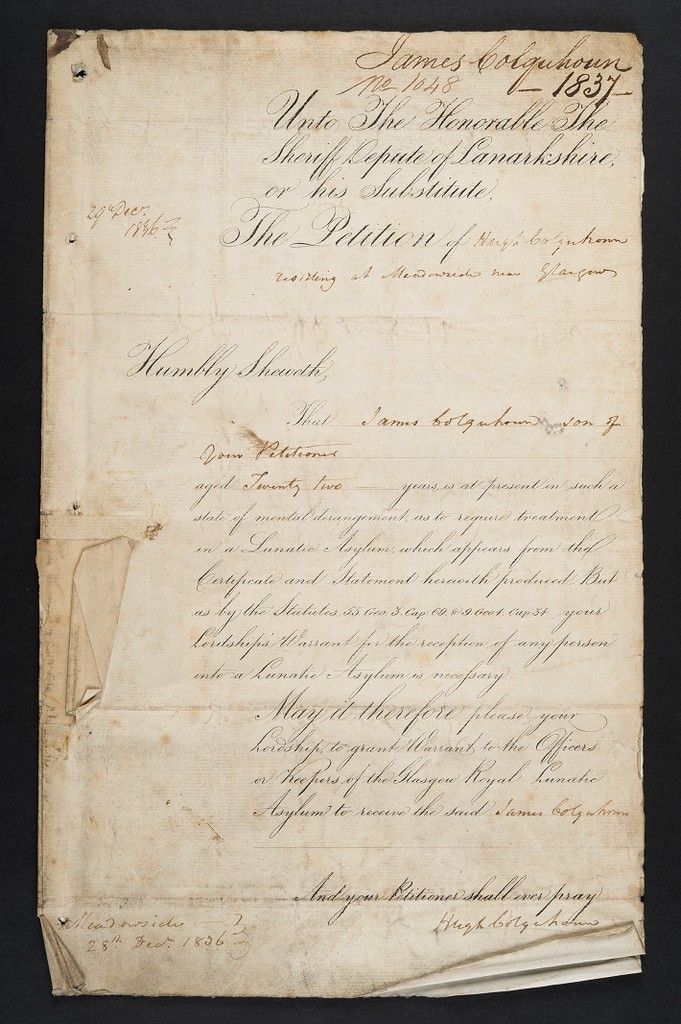 James Colquhoun
No 1048 — 1837 —
Unto The Honorable The
Sheriff Depute of Lanarkshire,
or his Substitute,
29th Decr.
1836.
The Petition of Hugh Colquhoun
residing at Meadowside near Glasgow
Humbly Sheweth,
That James Colquhoun son of
Your Petitioner
aged Twenty two years, is at present in such a
state of mental derangement, as to require treatment
in a Lunatic Asylum, which appears from the
Certificate and Statement herewith produced But
as by the Statutes 55. Geo. 3. Cap. 69. & 9. Geo 4. Cap. 34 your
Lordship's Warrant for the reception of any person
into a Lunatic Asylum is necessary
May it therefore please your
Lordship, to grant Warrant, to the Officers
or Keepers of the Glasgow Royal Lunatic
Asylum to receive the said James Colquhoun
And your Petitioner shall ever pray
Hugh Colquhoun
Meadowside
28th Decr. 1836